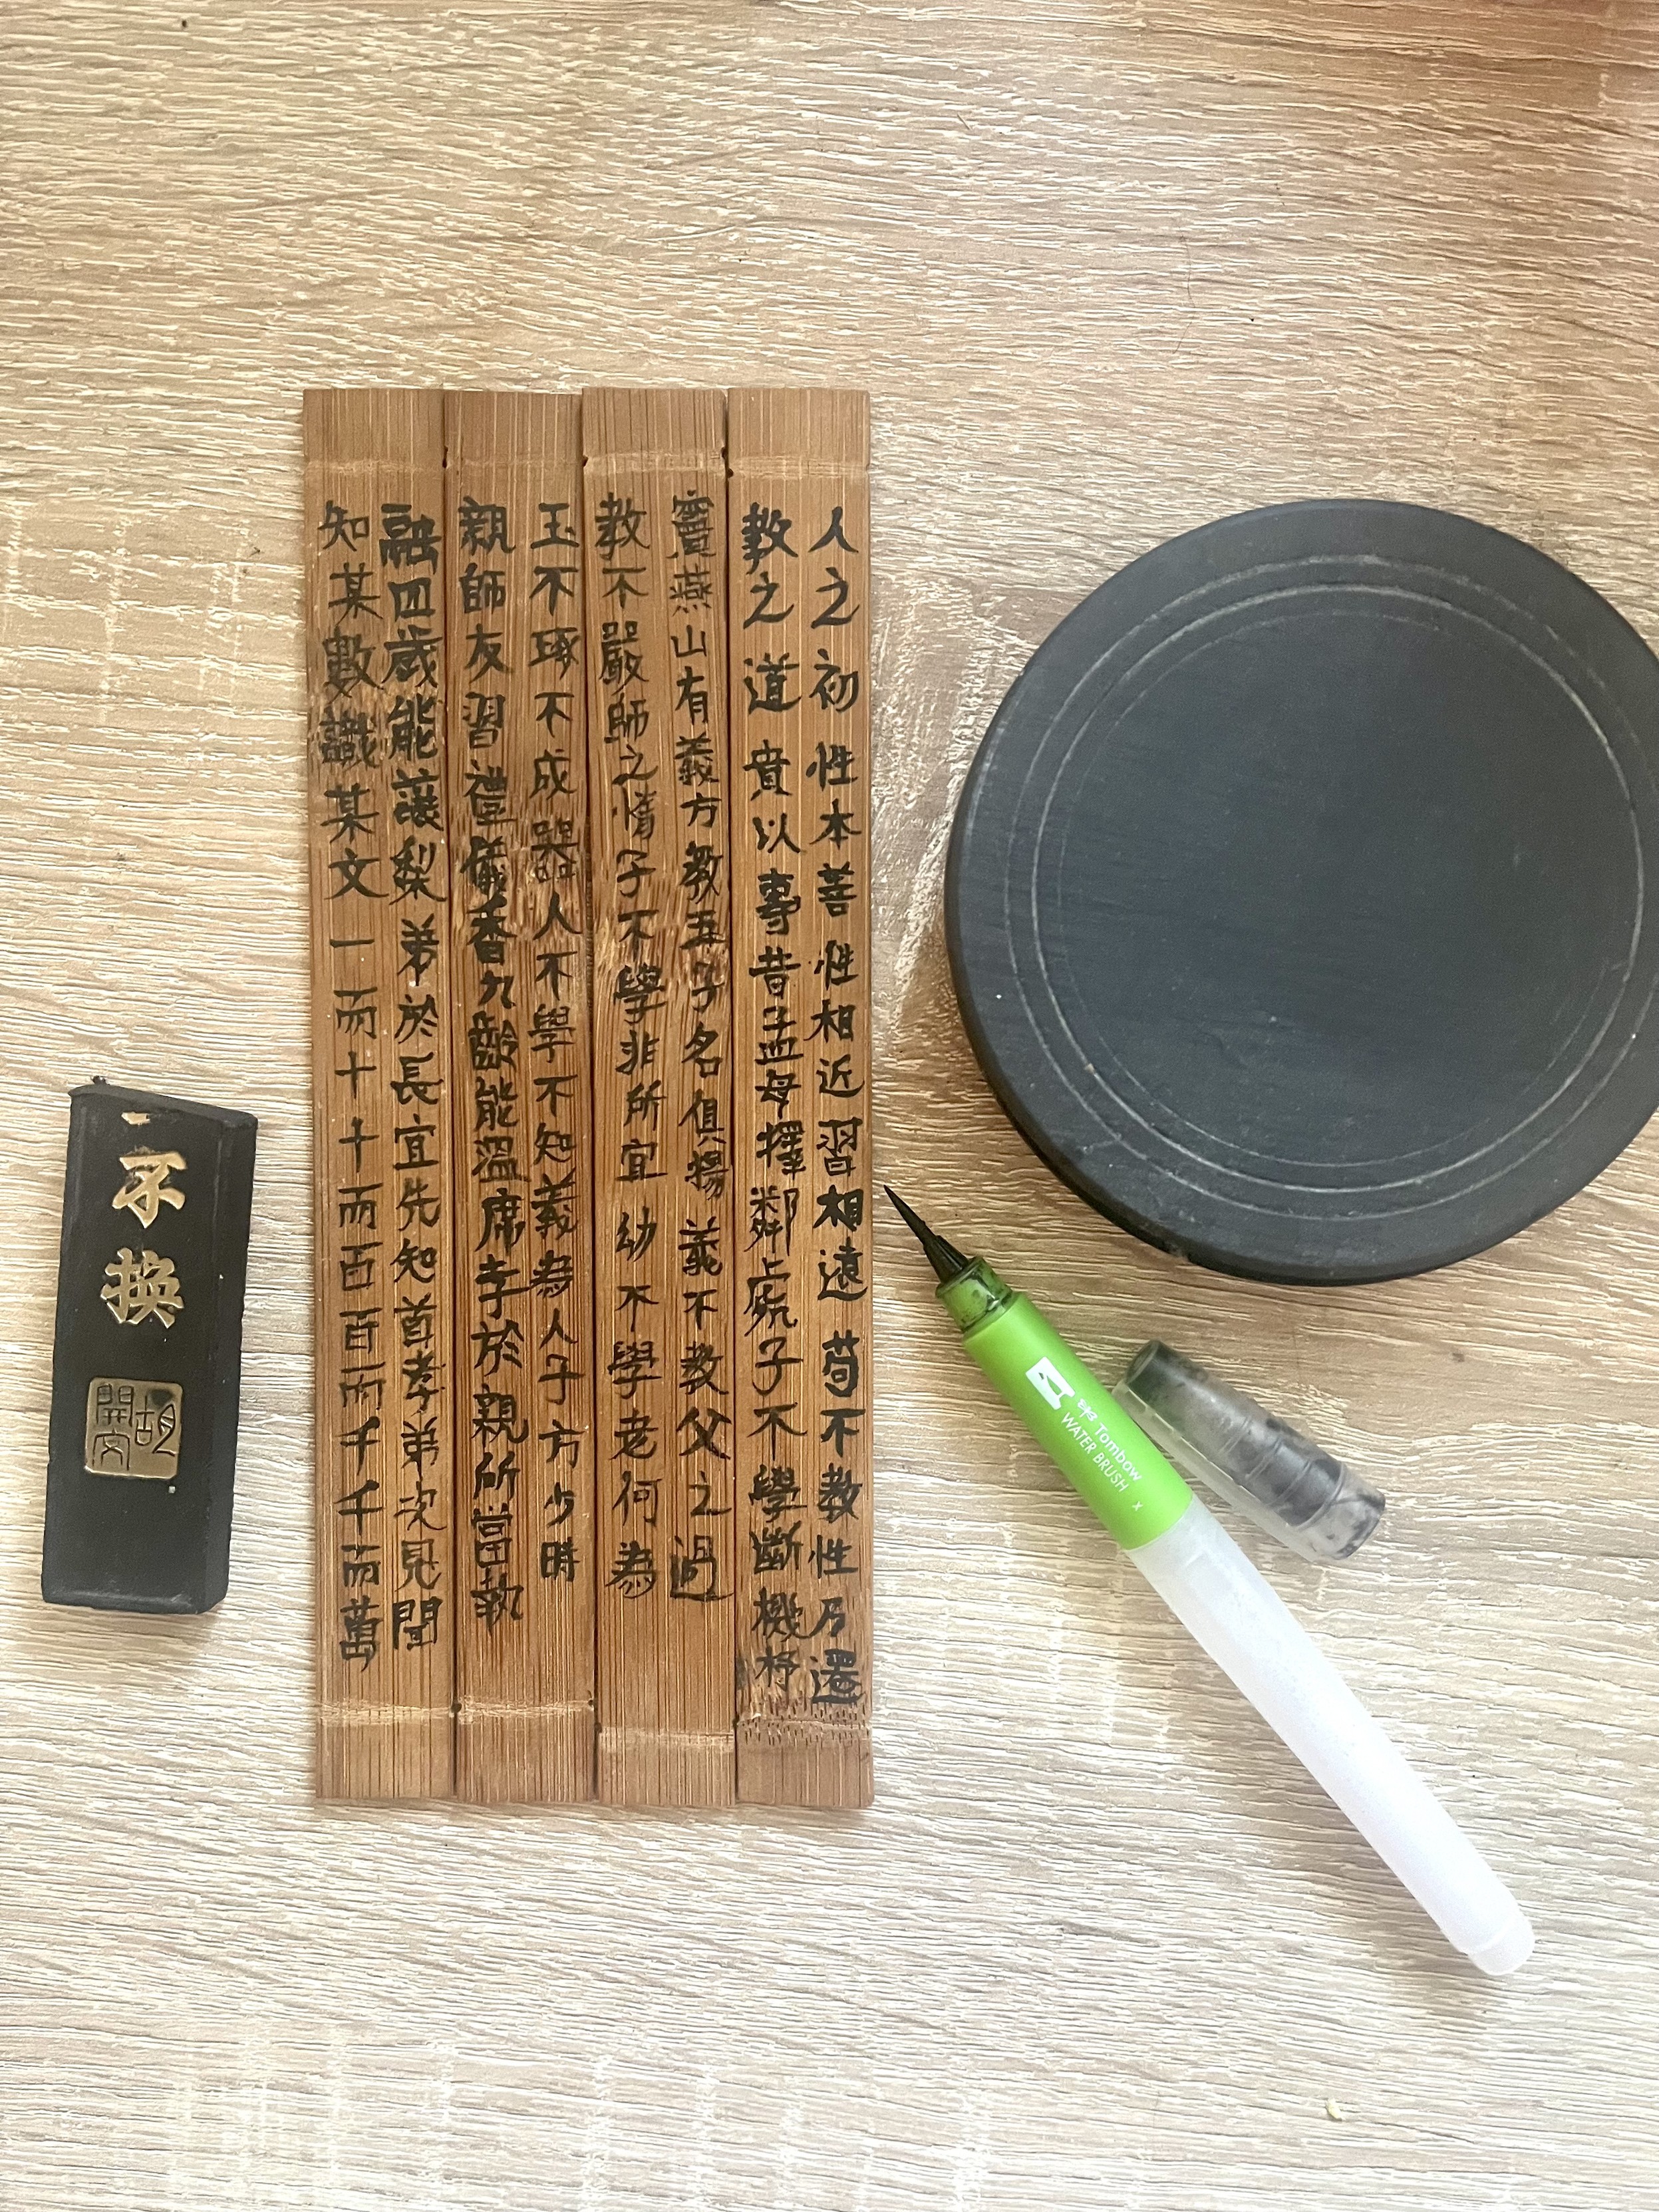 人之初性本善性相近習相遠苟不教性乃遷
教之道貴以專昔孟母擇鄰處子不學斷機杼
竇燕山有義方教五子名俱揚養不教父之過
教不嚴師之惰子不學非所宜幼不學老何為
玉不琢不成器人不學不知義為人子方少時
親師友習禮儀香九齡能溫席孝於親所當執
融四歲能讓梨弟於長宜先知首孝弟次見聞
知某數識某文一而十十而百百而千千而萬
不換
胡開文
Tombow
WATER BRUSH